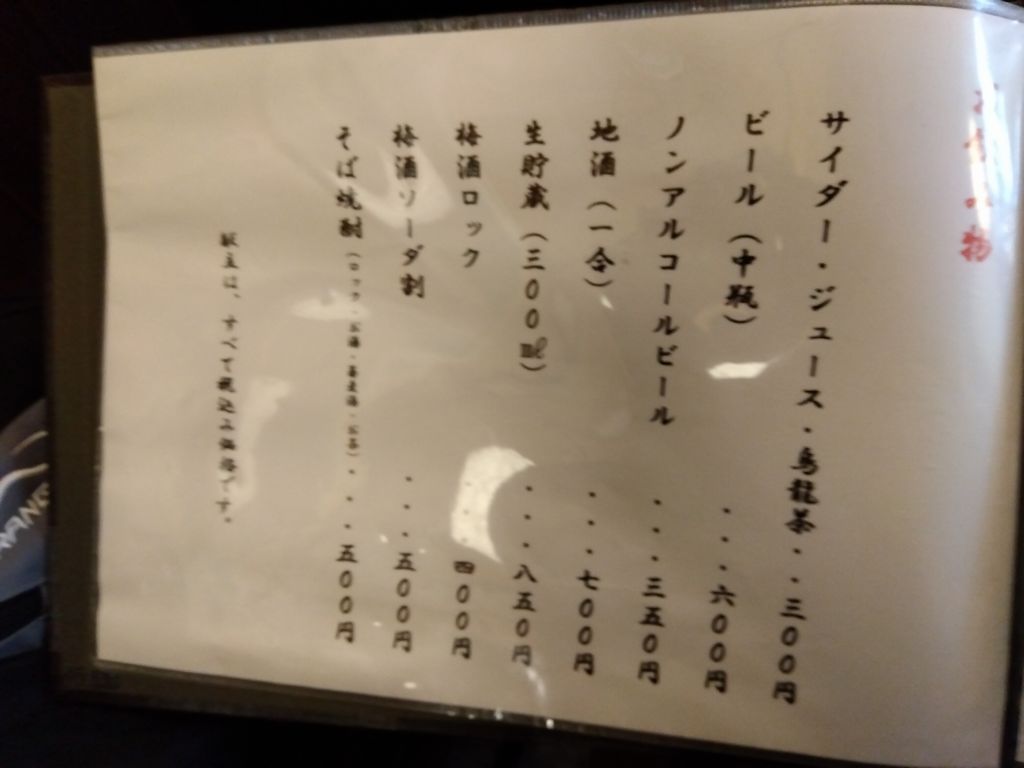 お飲み物
サイダー・ジュース・烏龍茶・・三００円
ビール（中瓶）・・・六００円
ノンアルコールビール・・・三五０円
地酒（一合）・・・七００円
生貯蔵（三００㎖）・・・八五０円
梅酒ロック・・・四００円
梅酒ソーダ割・・・五００円
そば焼酎（ロック・お湯・蕎麦湯・お茶）・・・五００円
は、すべて税込み価格です。